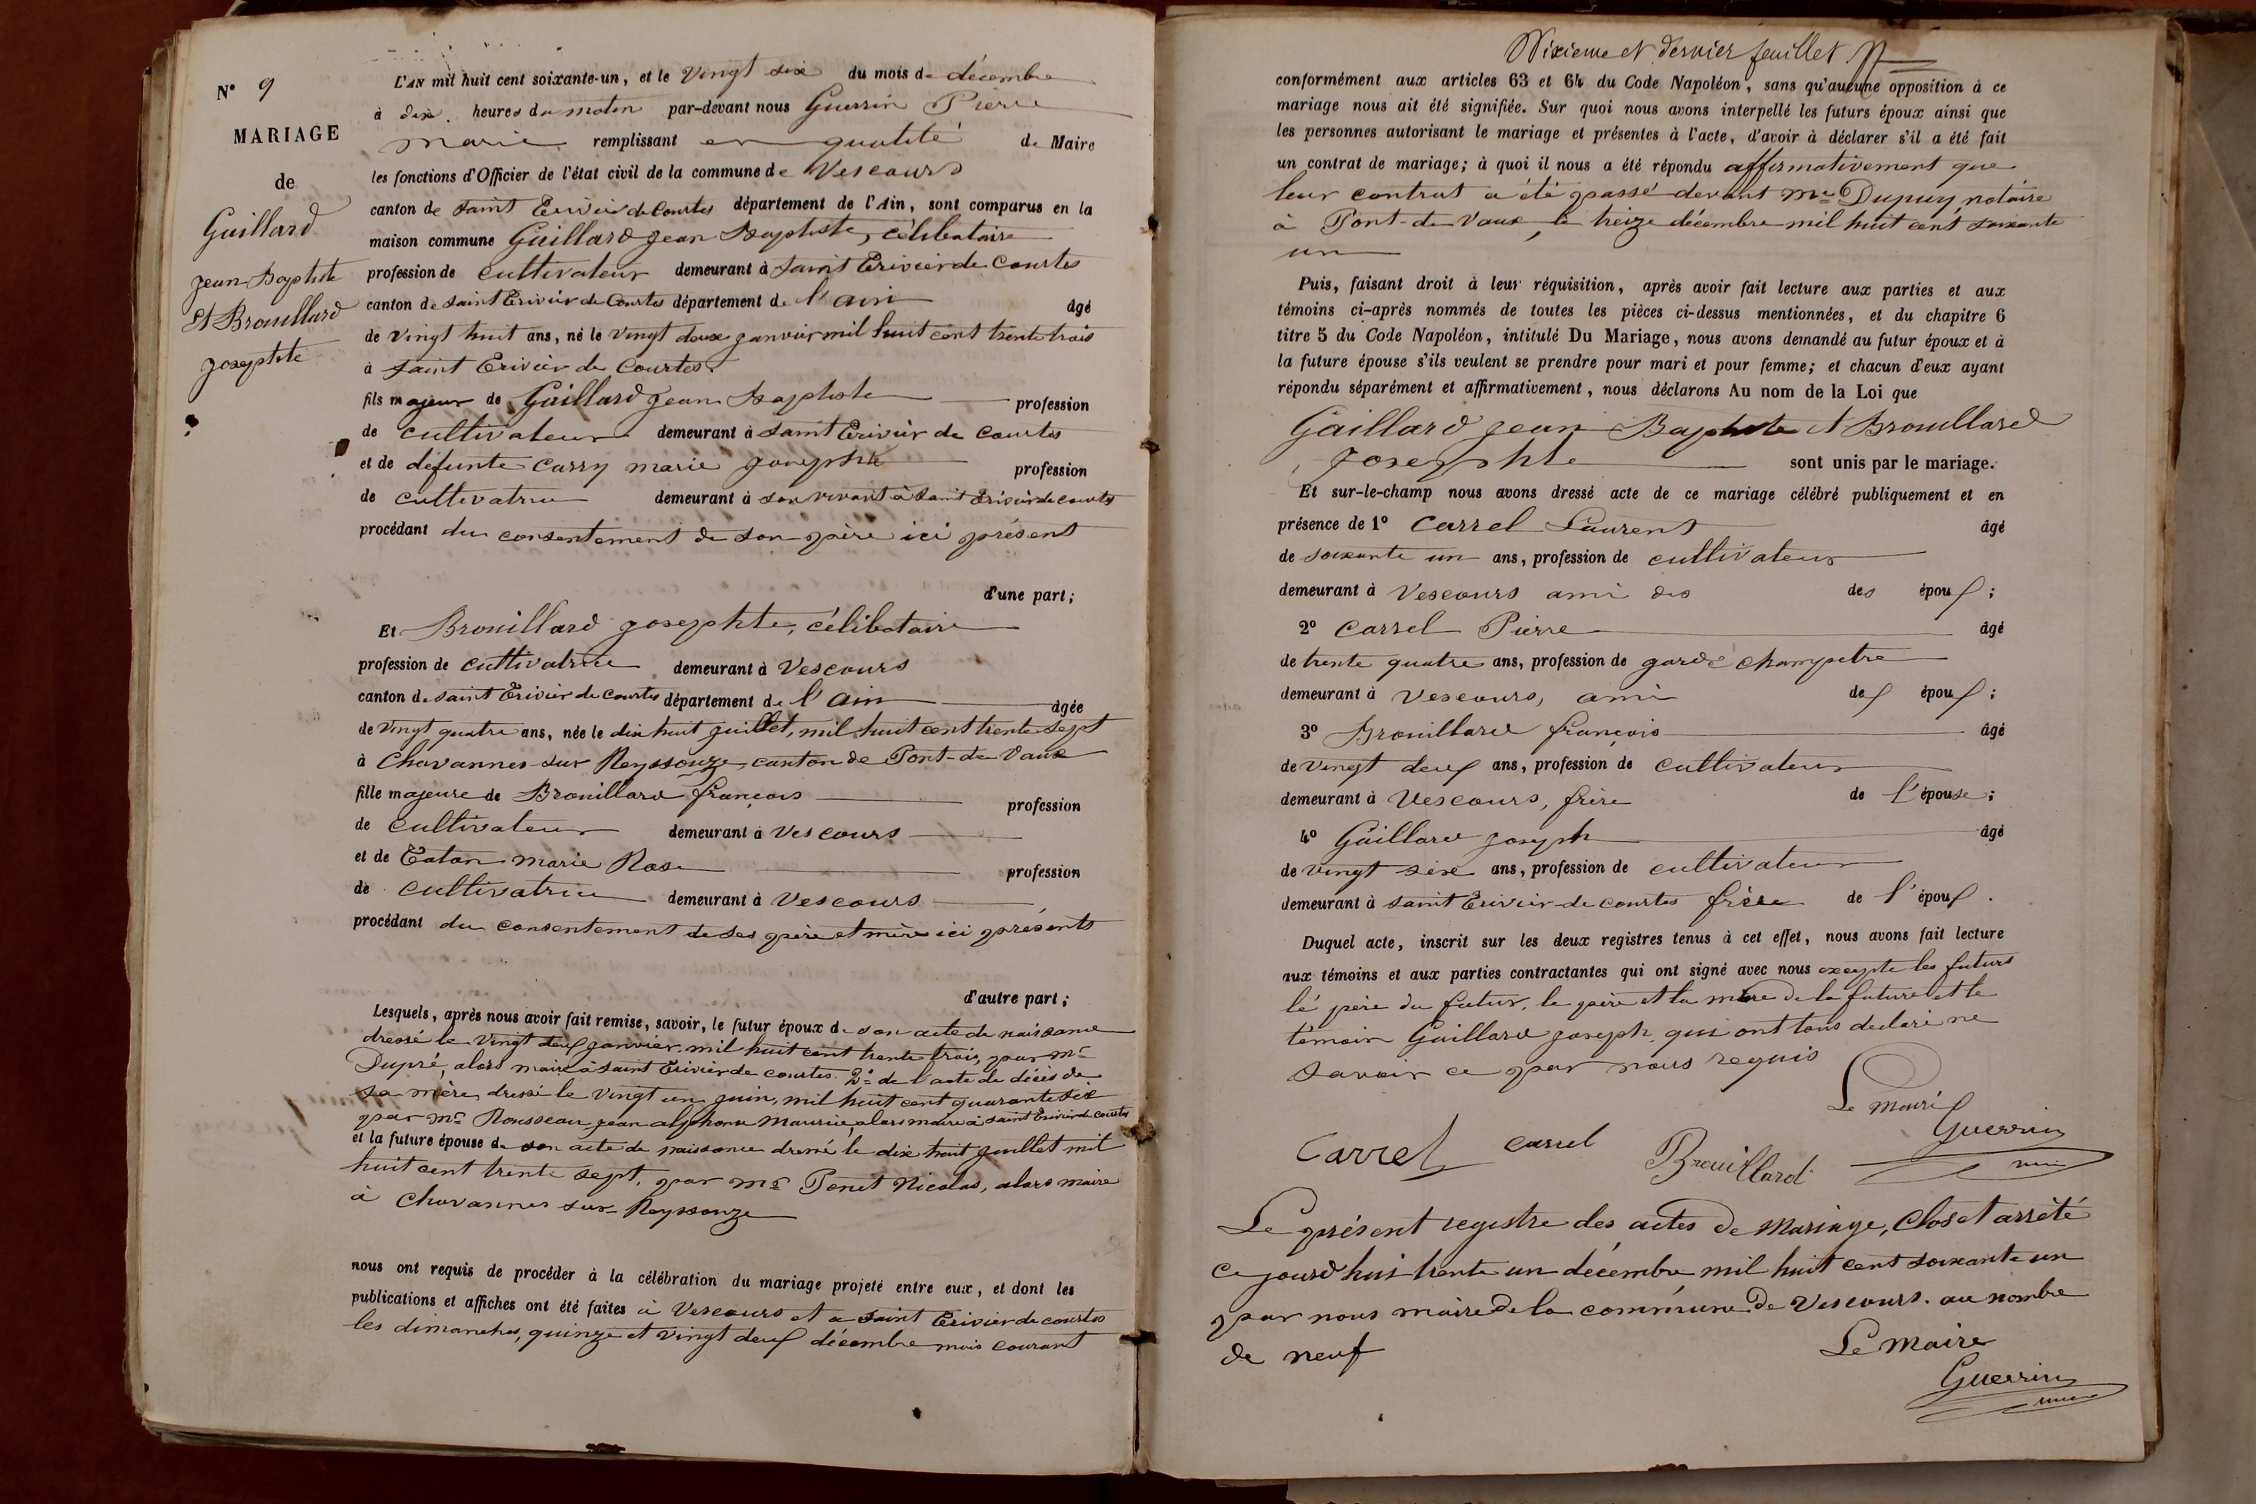 N° 9
MARIAGE
de
Gaillard
Jean Baptiste
et Brouillard
Josephte
L'AN mil huit cent soixante-un, et le vingt six du mois de décembre
à dix heures du matin par-devant nous Guerrin Pierre
Marie remplissant en qualité de Maire
les fonctions d'Officier de l'état civil de la commune de Vescours
canton de saint Trivier de Courtes département de l'Ain, sont comparus en la
maison commune Gaillard Jean Baptiste, célibataire
profession de cultivateur demeurant à saint Trivier de Courtes
canton de saint Trivier de Courtes département de l'ain âgé
de vingt huit ans, né le vingt deux janvier mil huit cent trente trois
à saint Trivier de Courtes
fils majeur de Gaillard Jean Baptiste profession
de cultivateur demeurant à saint Trivier de Courtes
et de défunte Carry marie Josephte profession
de cultivatrice demeurant à son vivant à saint Trivier de Courtes
procédant du consentement de son père ici présent
d'une part;
Et Brouillard Josephte, célibataire
profession de cultivatrice demeurant à Vescours
canton de saint Trivier de Courtes département de l'ain âgée
de vingt quatre ans, née le dix huit juillet, mil huit cent trente sept
à Chavannes sur Reyssouze, canton de Pont-de-Vaux
fille majeure de Brouillard françois profession
de cultivateur demeurant à Vescours
et de Caton marie Rose profession
de cultivatrice demeurant à Vescours
procédant du consentement de ses père et mère ici présents
d'autre part;
Lesquels, après nous avoir fait remise, savoir, le futur époux de son acte de naissance
dressé le vingt deux janvier mil huit cent trente trois, par mr
Dupré, alors maire à saint Trivier de courtes. 2° de l'acte de décès de
sa mère dressé le vingt un juin, mil huit cent quarante six
par mr Rousseau jean alphonse Maurice, alors maire à saint Trivier de courtes
et la future épouse de son acte de naissance dressé le dix huit juillet mil
huit cent trente sept, par mr Ponet Nicolas, alors maire
à Chavannes sur Reyssouze
nous ont requis de procéder à la célébration du mariage projeté entre eux, et dont les
publications et affiches ont été faites à Vescours et à saint Trivier de courtes
les dimanches, quinze et vingt deux décembre mois courant
Sixieme et dernier feuillet
conformément aux articles 63 et 64 du Code Napoléon, sans qu'aucune opposition à ce
mariage nous ait été signifiée. Sur quoi nous avons interpellé les futurs époux ainsi que
les personnes autorisant le mariage et présentes à l'acte, d'avoir à déclarer s'il a été fait
un contrat de mariage; à quoi il nous a été répondu affirmativement que
leur contrat a été passé devant Me Dupuy notaire
à Pont-de-Vaux, le treize décembre mil huit cent soixante
un
Puis, faisant droit à leur réquisition, après avoir fait lecture aux parties et aux
témoins ci-après nommés de toutes les pièces ci-dessus mentionnées, et du chapitre 6
titre 5 du Code Napoléon, intitulé Du Mariage, nous avons demandé au futur époux et à
la future épouse s'ils veulent se prendre pour mari et pour femme; et chacun d'eux ayant
répondu séparément et affirmativement, nous déclarons Au nom de la Loi que
Gaillard Jean Baptiste et Brouillard
Josephte sont unis par le mariage.
Et sur-le-champ nous avons dressé acte de ce mariage célébré publiquement et en
présence de 1° Carrel Laurent âgé
de soixante un ans, profession de cultivateur
demeurant à Vescours ami des des époux;
2° Carrel Pierre âgé
de trente quatre ans, profession de garde champetre
demeurant à Vescours, ami des époux;
3° Brouillard françois âgé
de vingt deux ans, profession de cultivateur
demeurant à Vescours, frère de l'épouse;
4° Gaillard joseph âgé
de vingt six ans, profession de cultivateur
demeurant à saint Trivier de courtes frère de l'époux.
Duquel acte, inscrit sur les deux registres tenus à cet effet, nous avons fait lecture
aux témoins et aux parties contractantes qui ont signé avec nous excepté les futurs
lé père du futur, le père et la mère de la future et le
témoin Gaillard joseph, qui ont tous declaré ne
savoir ce par nous requis
Le maire
Guerrin
Carrel carrel Brouillard
Le présent registre des actes de Mariage, Clos et arrêté
ce jourd'hui trente un décembre mil huit cent soixante un
par nous maire de la commune de Vescours. au nombre
de neuf
Le Maire
Guerrin